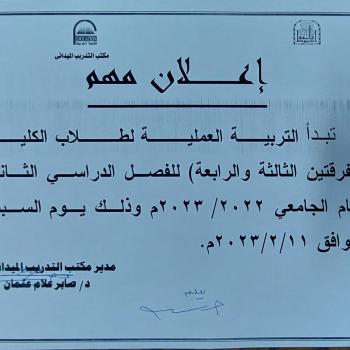 مكتب التدريب الميدانى
إعلان مهم
تبدأ التربية العملية لطلاب الكلي
فرقتين الثالثة والرابعة) للفصل الدراسي الثان
ام الجامعي ٢٠٢٢/ ٢٠٢٣م وذلك يوم السب
وافق ٢٠٢٣/٢/١١م.
مدير مكتب التدريب الميدان
د/ صابر علام عثمان